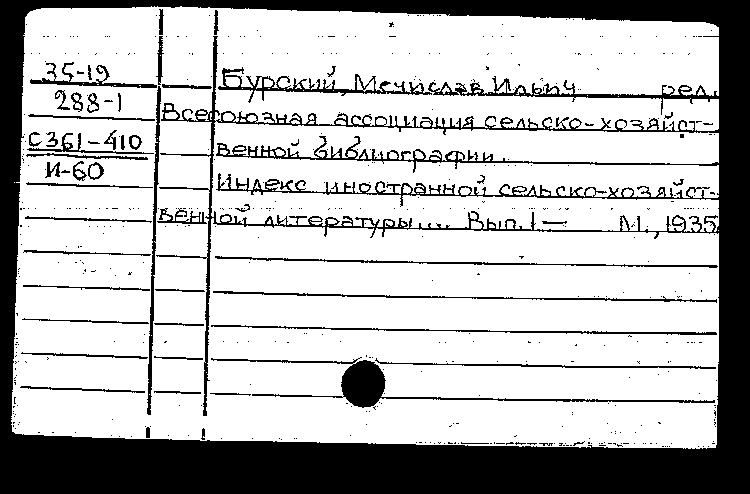 35-19
288-1
С361-410
И-60
Бурский, Мечислав Ильич ред.
Всесоюзная ассоциация сельско-хозяйст-
венной библиографии.
Индекс иностранной сельско-хозяйст-
венной литературы.... Вып. 1— М., 1935